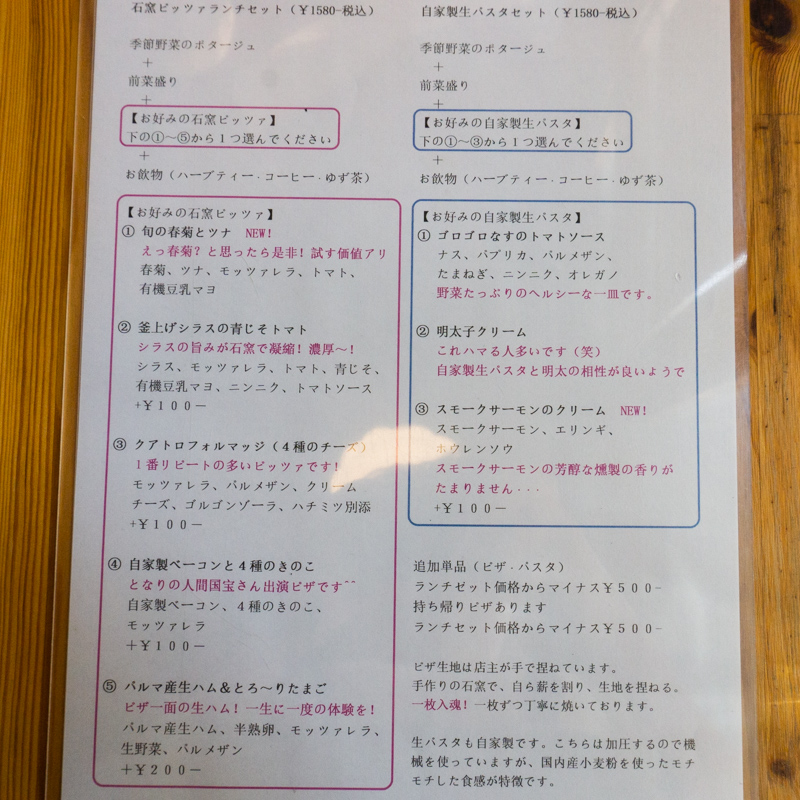 石窯ピッツァランチセット（￥1580-税込）
季節野菜のポタージュ
＋
前菜盛り
＋
【お好みの石窯ピッツァ】
下の①～⑤から１つ選んでください
＋
お飲物（ハーブティー・コーヒー・ゆず茶）
【お好みの石窯ピッツァ】
① 旬の春菊とツナ NEW!
えっ春菊？と思ったら是非！試す価値アリ
春菊、ツナ、モッツァレラ、トマト、
有機豆乳マヨ
② 釜上げシラスの青じそトマト
シラスの旨みが石窯で凝縮！濃厚～！
シラス、モッツァレラ、トマト、青じそ、
有機豆乳マヨ、ニンニク、トマトソース
+￥１００－
③ クアトロフォルマッジ（４種のチーズ）
１番リピートの多いピッツァです！
モッツァレラ、パルメザン、クリーム
チーズ、ゴルゴンゾーラ、ハチミツ別添
+￥１００－
④ 自家製ベーコンと４種のきのこ
となりの人間国宝さん出演ピザです^^
自家製ベーコン、４種のきのこ、
モッツァレラ
＋￥１００－
⑤ パルマ産生ハム＆とろ～りたまご
ピザ一面の生ハム！一生に一度の体験を！
パルマ産生ハム、半熟卵、モッツァレラ、
生野菜、パルメザン
＋￥２００－
自家製生パスタセット（￥1580-税込）
季節野菜のポタージュ
＋
前菜盛り
＋
【お好みの自家製生パスタ】
下の①～③から１つ選んでください
＋
お飲物（ハーブティー・コーヒー・ゆず茶）
【お好みの自家製生パスタ】
① ゴロゴロなすのトマトソース
ナス、パプリカ、パルメザン、
たまねぎ、ニンニク、オレガノ
野菜たっぷりのヘルシーな一皿です。
② 明太子クリーム
これハマる人多いです（笑）
自家製生パスタと明太の相性が良いようで
③ スモークサーモンのクリーム NEW!
スモークサーモン、エリンギ、
ホウレンソウ
スモークサーモンの芳醇な燻製の香りが
たまりません・・・
+￥１００－
追加単品（ピザ・パスタ）
ランチセット価格からマイナス￥５００-
持ち帰りピザあります
ランチセット価格からマイナス￥５００-
ピザ生地は店主が手で捏ねています。
手作りの石窯で、自ら薪を割り、生地を捏ねる。
一枚入魂！一枚ずつ丁寧に焼いております。
生パスタも自家製です。こちらは加圧するので機
械を使っていますが、国内産小麦粉を使ったモチ
モチした食感が特徴です。